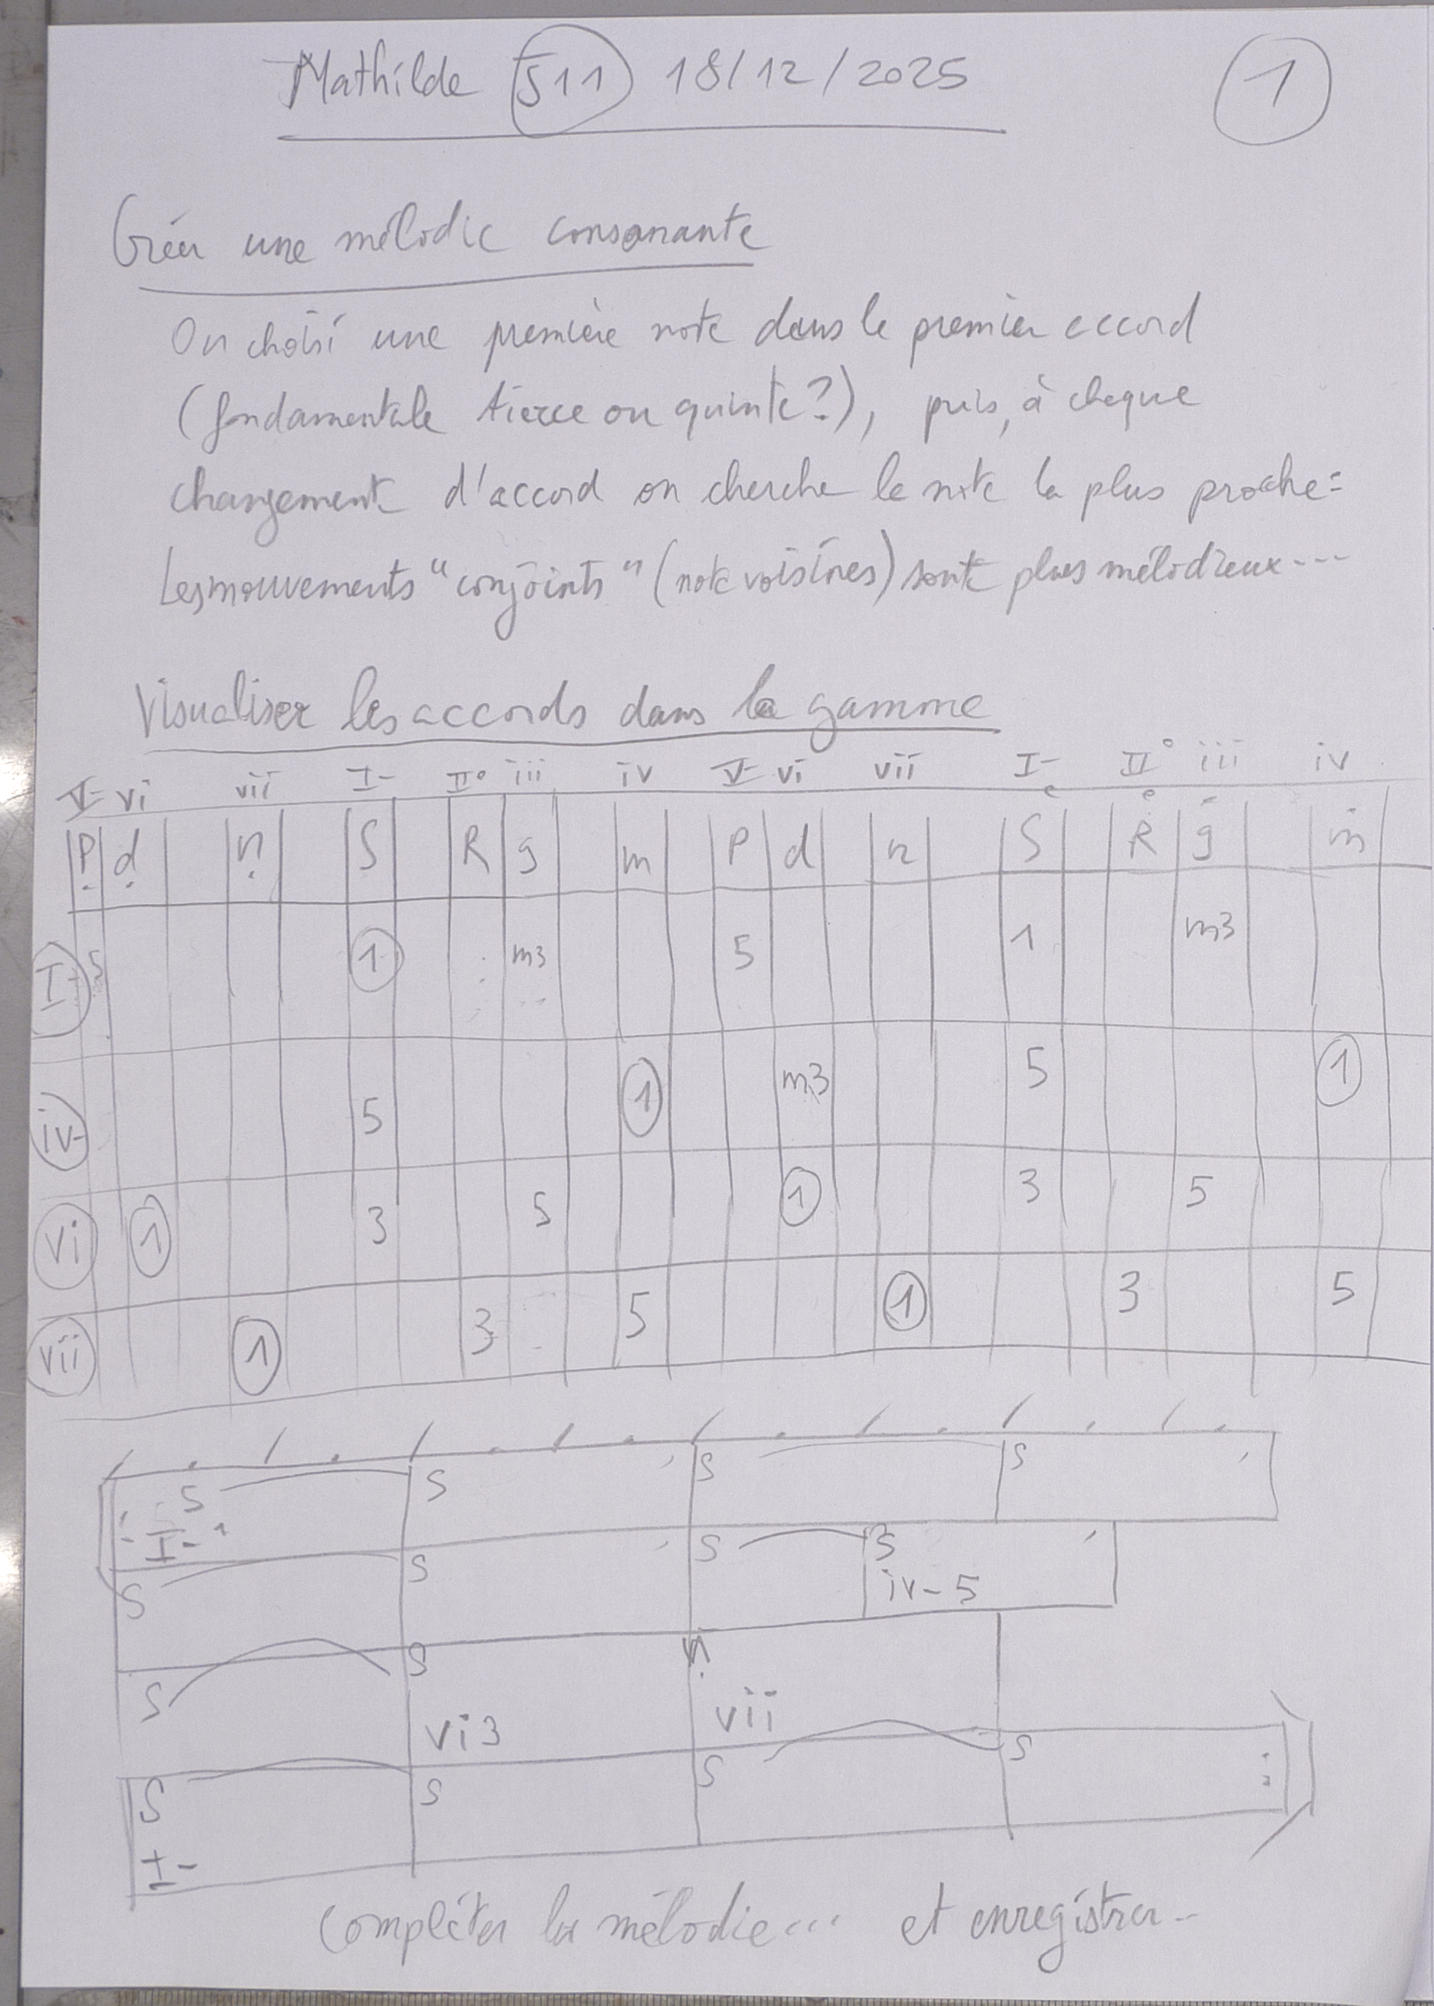 Mathilde S11 18/12/2025 1
Créer une mélodie consonante
On choisi une première note dans le premier accord
(fondamentale tierce ou quinte?), puis, à chaque
changement d'accord on cherche la note la plus proche =
Les mouvements "conjoints" (note voisines) sont plus mélodieux...
Visualiser les accords dans la gamme
V- vi vii I- II° iii iv V- vi vii I- II° iii iv
P d n S R g m P d n S R g m
I- 5 1 m3 5 1 m3
iv- 5 1 m3 5 1
vi 1 3 5 1 3 5
vii 1 3 5 1 3 5
S S S S
I- 1
S S S 3
iv- 5
S S n
vi 3 vii
S S S S
I-
compléter la mélodie... et enregistrer..